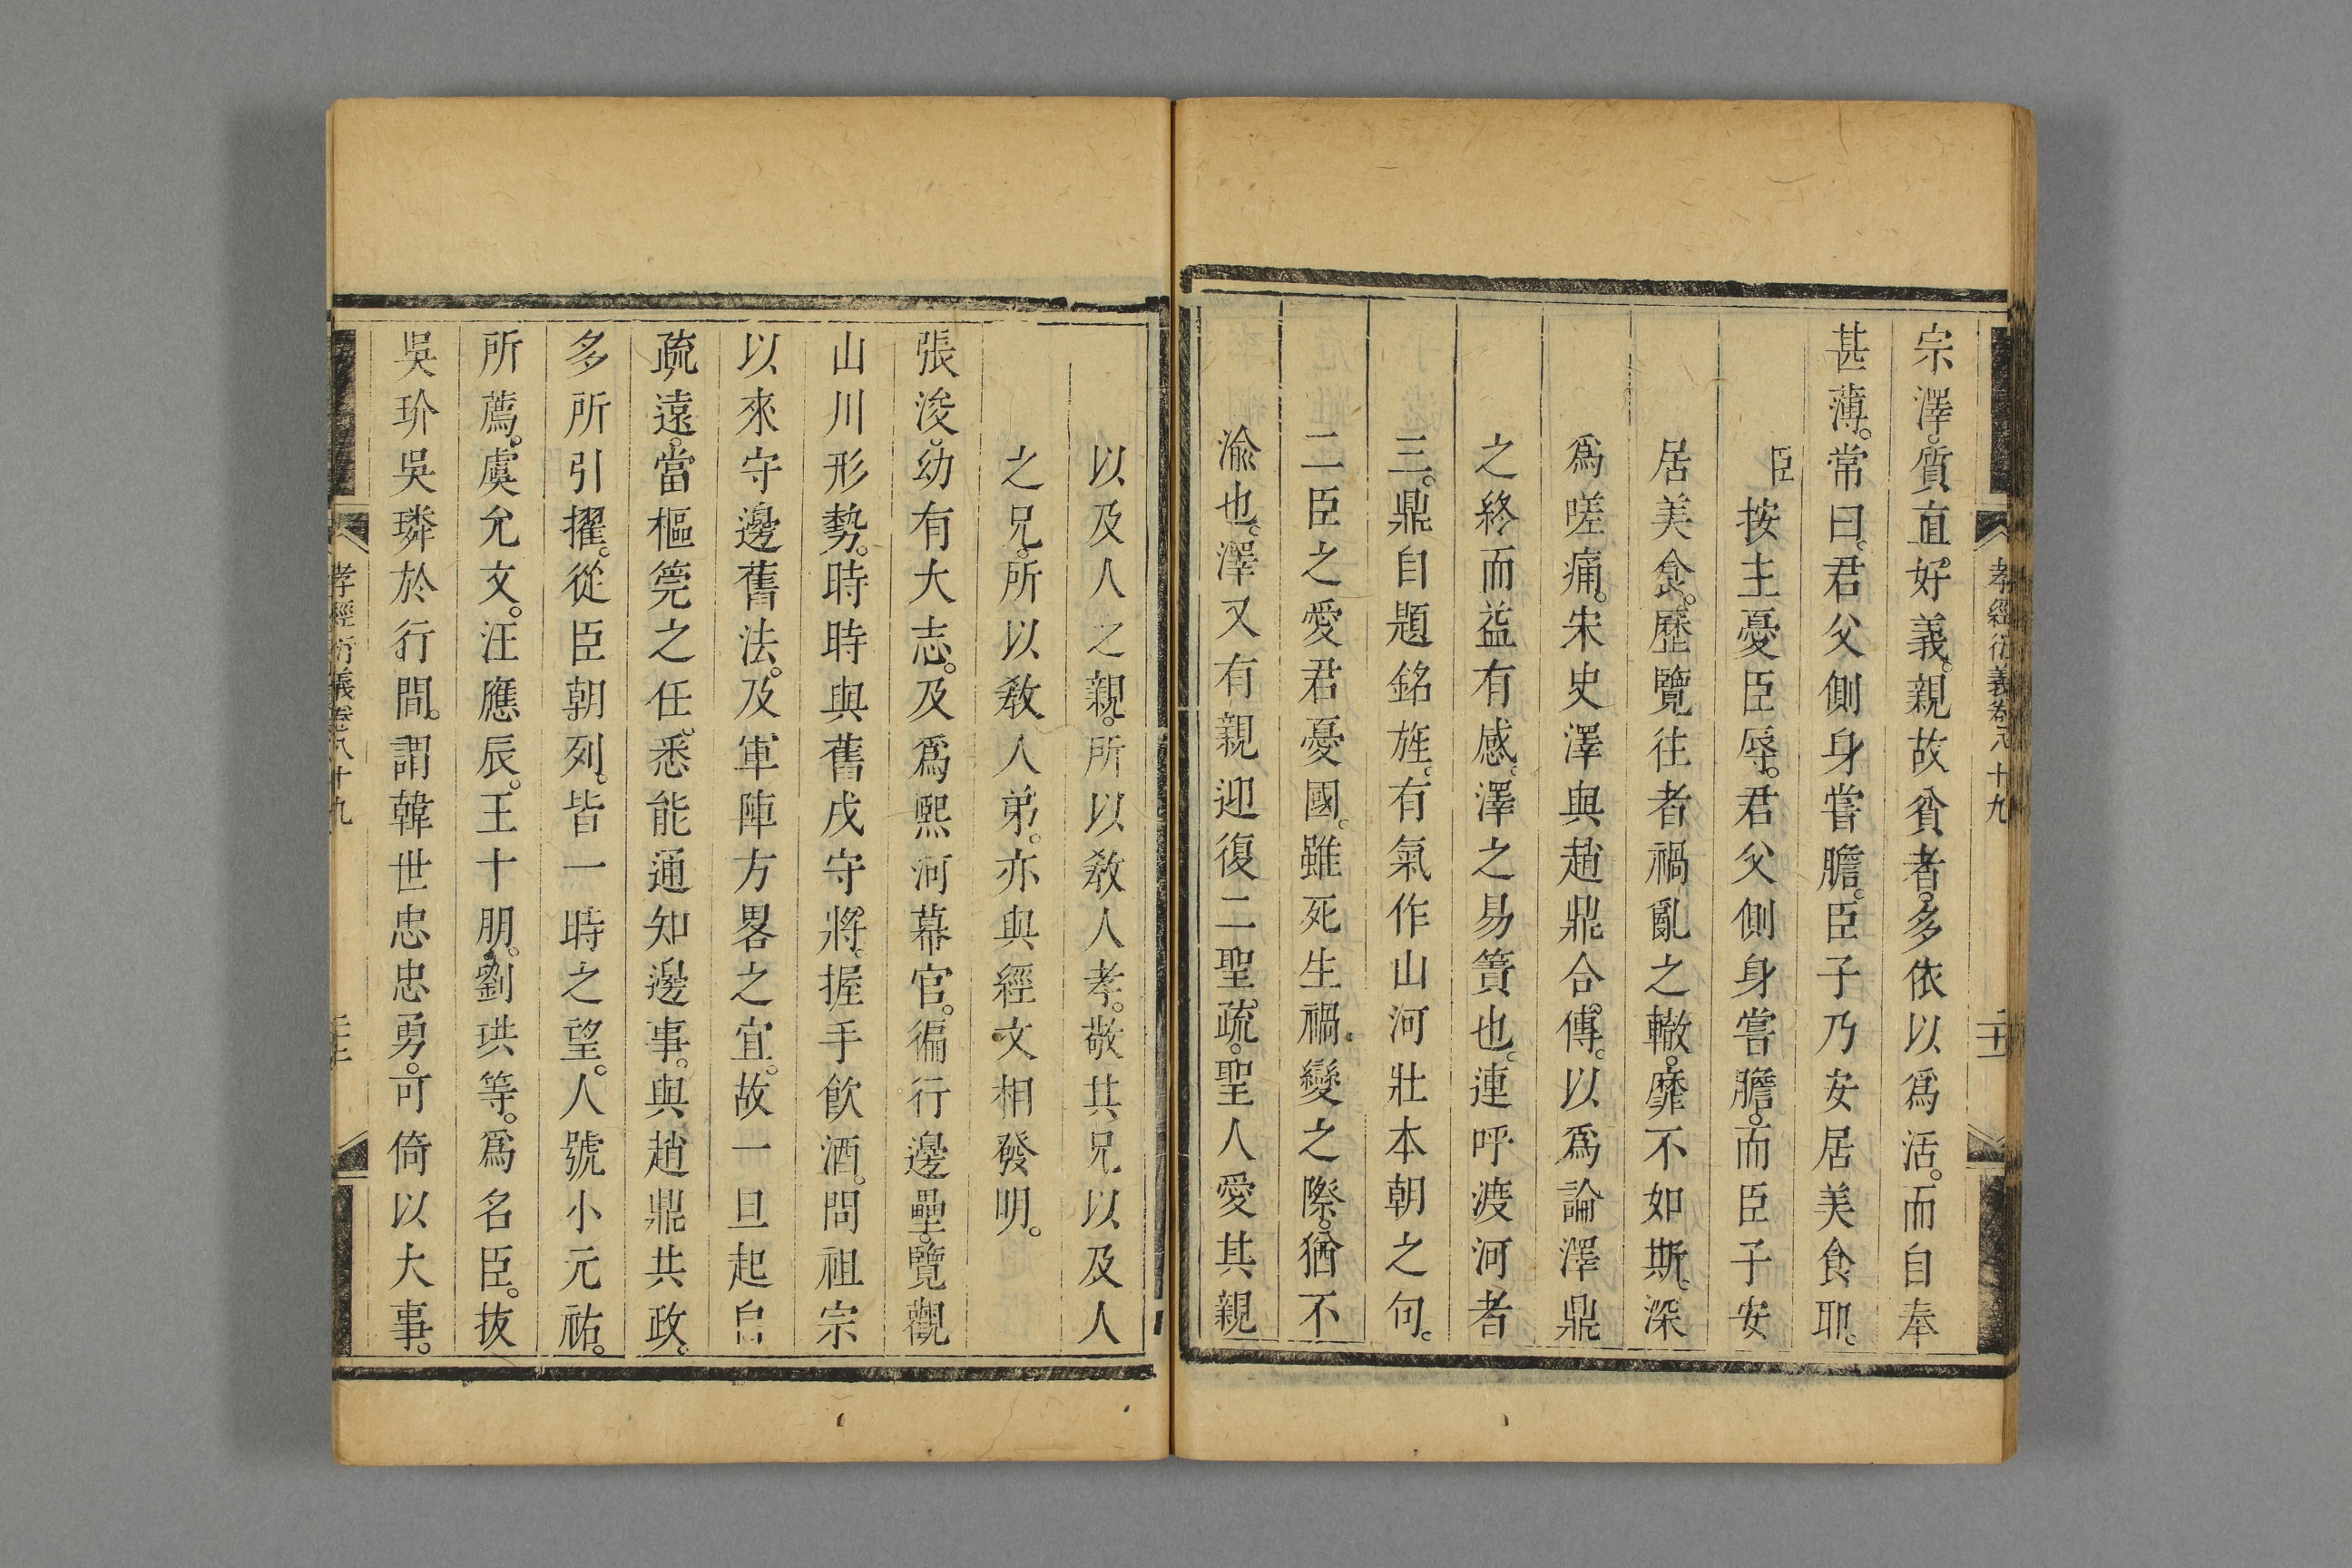 孝經衍義卷八十九
宗澤。質直好義。親故貧者。多依以爲活。而自奉
甚薄。常曰。君父側身嘗膽。臣子乃安居美食耶。
臣按主憂臣辱。君父側身嘗膽。而臣子安
居美食。歷覽往者禍亂之轍。靡不如斯。深
爲嗟痛。宋史澤與趙鼎合傳。以爲論澤鼎
之終而益有感。澤之易簀也。連呼渡河者
三。鼎自題銘旌。有氣作山河壯本朝之句。
二臣之愛君憂國。雖死生禍變之際。猶不
渝也。澤又有親迎復二聖疏。聖人愛其親
以及人之親。所以敎人孝。敬其兄以及人
之兄。所以敎人弟。亦與經文相發明。
張浚。幼有大志。及爲熙河幕官。徧行邊壘。覽觀
山川形勢。時時與舊戍守將。握手飮酒。問祖宗
以來守邊舊法。及軍陣方畧之宜。故一旦起自
疏遠。當樞筦之任。悉能通知邊事。與趙鼎共政。
多所引擢。從臣朝列。皆一時之望。人號小元祐。
所薦。虞允文。汪應辰。王十朋。劉珙等。爲名臣。抜
吳玠吳璘於行間。謂韓世忠忠勇。可倚以大事。
孝經衍義卷八十九